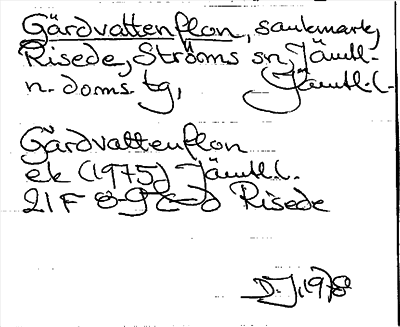 Gärdvattenflon, sankmark,
Risede, Ströms sn, Jämtl.
n. doms. tg, Jämtl. l.
Gärdvattenflon
ek (1975) Jämtl. l.
21 F 8-9 c-d Risede
D.J. 1978